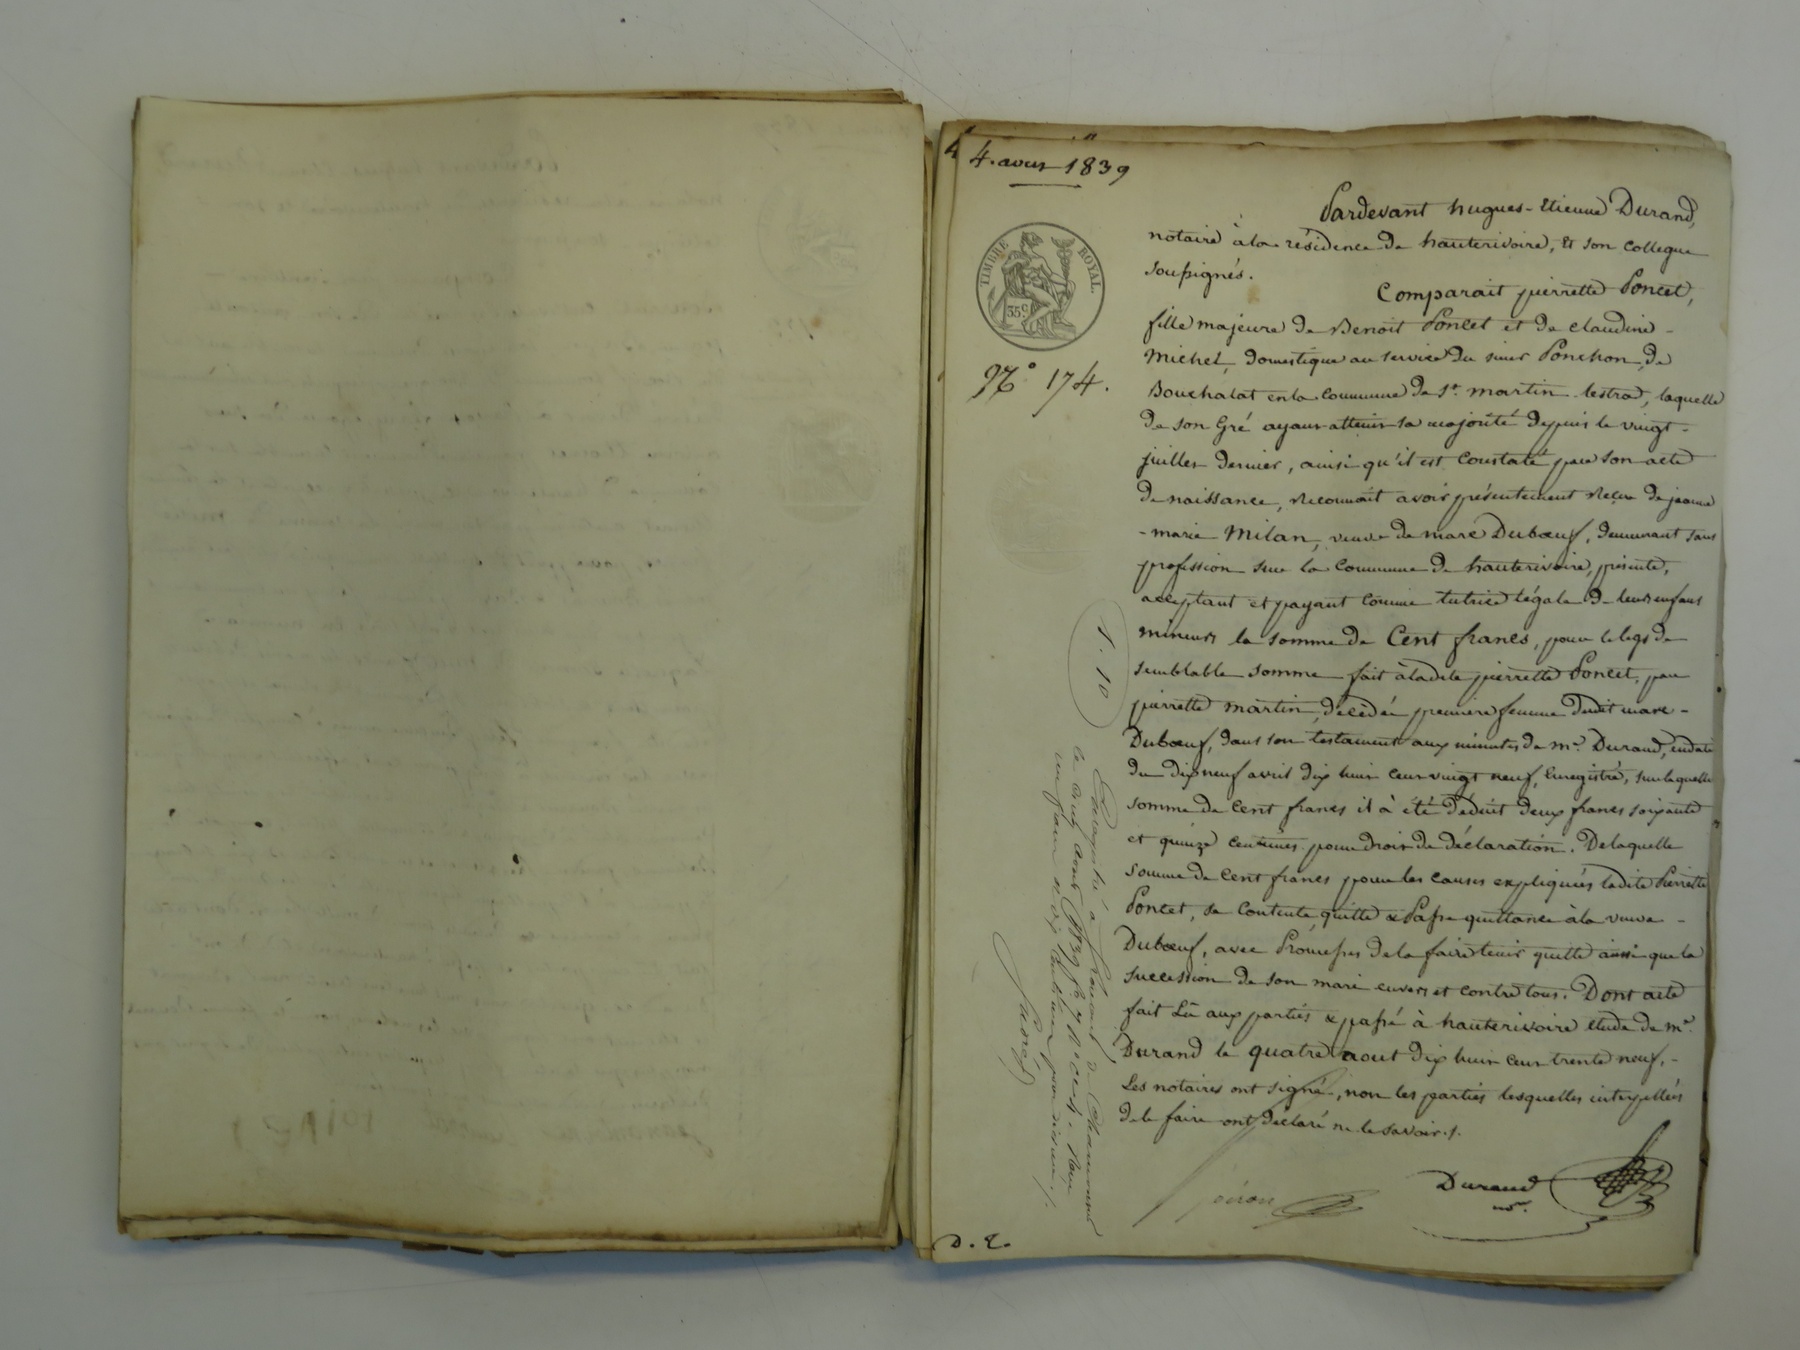 4. aout 1839
TIMBRE ROYAL.
35 c
N° 174.
Pardevant hugues-Etienne Durand,
notaire à la résidence de hauterivoire, et son collegue
soussignés.
Comparait pierrette Poncet,
fille majeure de Benoit Poncet et de claudine
Michel, domestique au service du sieur Ponchon, de
Bouchalat en la commune de St. martin lestra, laquelle
de son Gré ayant atteint sa majorité depuis le vingt-
juillet dernier, ainsi qu'il est constaté par son acte
de naissance, Reconnait avoir présentement Reçu de jeanne
-marie Milan, veuve de marc Dubœuf, demeurant sans
profession sur la commune de hauterivoire, présente,
acceptant et payant comme tutrice légale de leurs enfans
mineurs la somme de Cent francs, pour le legs de
semblable somme fait à ladite pierrette Poncet, par
pierrette martin, décédée premiere femme dudit marc-
Dubœuf, dans son testament aux minutes de me. Durand, en date
du dix neuf avril dix huit cent vingt neuf, Enregistré, sur laquelle
somme de cent francs il à été déduit deux francs soixante
et quinze centimes pour droit de déclaration. De laquelle
somme de cent francs pour les causes expliquées ladite Pierrette
Poncet, se contente quitte & Passe quittance à la veuve
Dubœuf, avec Promesses de la faire tenir quitte ainsi que la
succession de son mari envers et contre tous. Dont acte
fait Lu aux parties & passé à hauterivoire etude de me.
Durand le quatre aout dix huit cent trente neuf,
Les notaires ont signé, non les parties lesquelles interpellées
de le faire ont déclaré ne le savoir./.
Durand
nre.
1. 10
Enregistré à St Laurent de Chamousset
le août 1839 Reçu
un franc dix centimes pour décime
D. E.